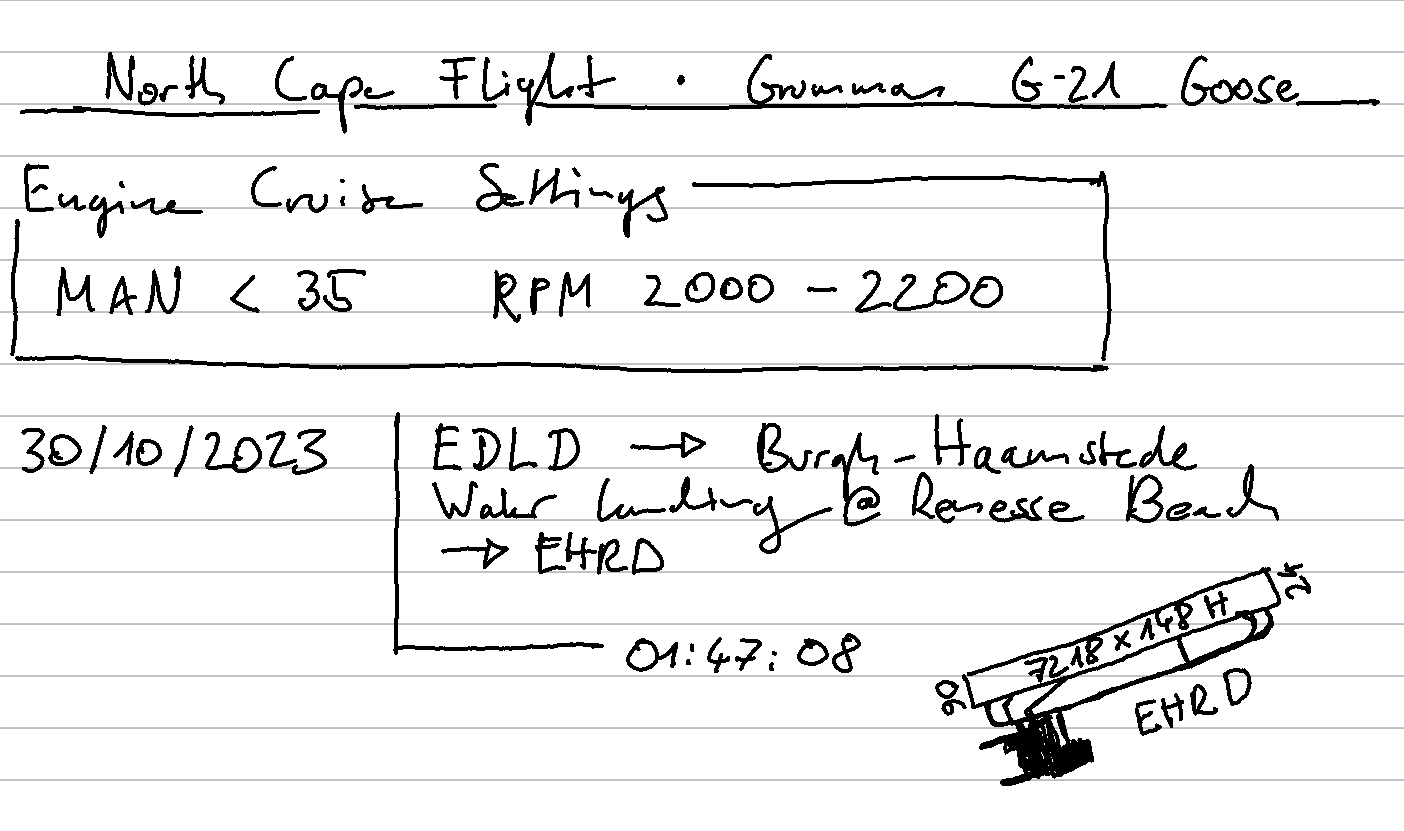 North Cape Flight · Grumman G-21 Goose
Engine Cruise Settings
MAN < 35 RPM 2000 - 2200
30/10/2023 EDLD → Burgh-Haamstede
Water landing @ Renesse Beach
→ EHRD
01:47:08
06 7218 x 148 H 24
EHRD